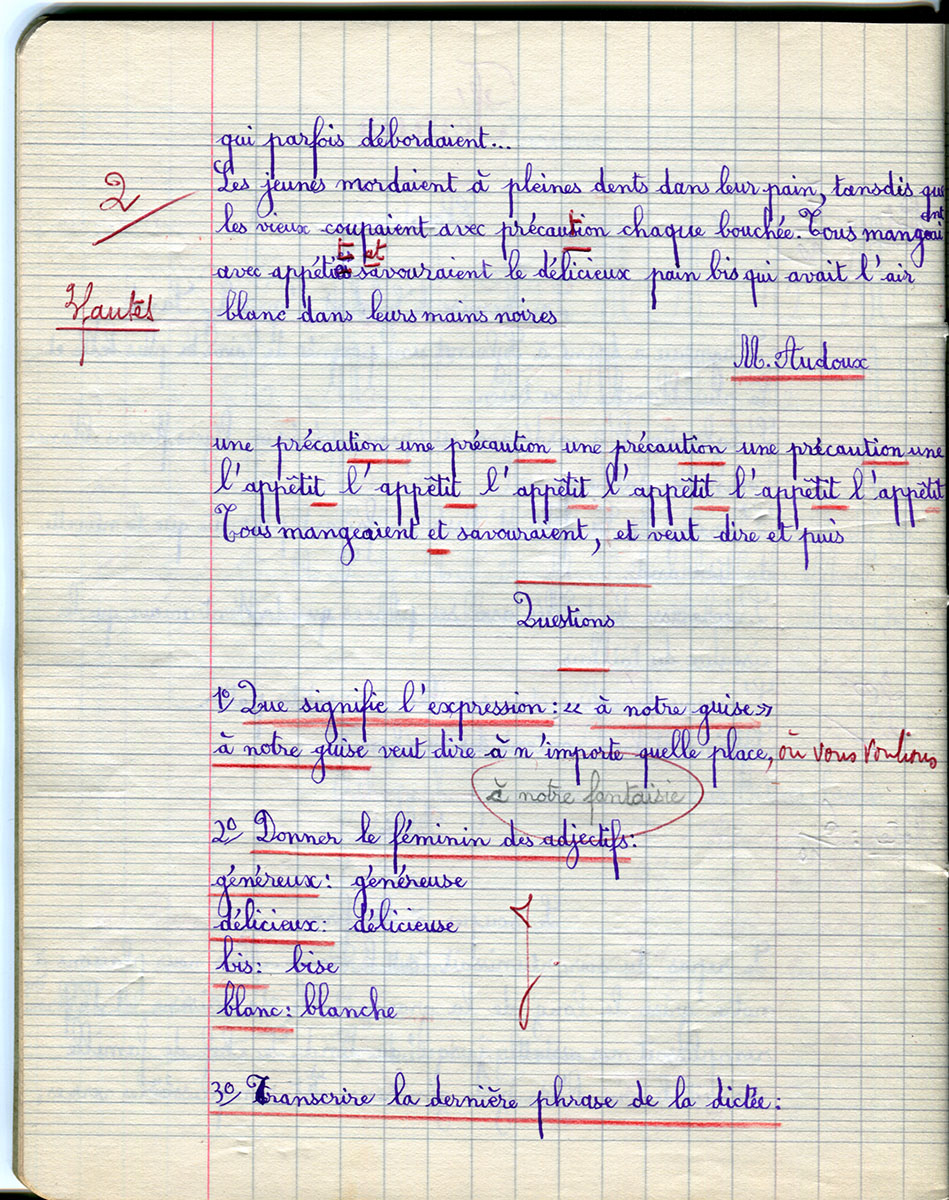 qui parfois débordaient...
Les jeunes mordaient à pleines dents dans leur pain, tansdis que
2
les vieux coupaient avec précaution chaque bouchée. Tous mangeaient
avec appétit et savouraient le délicieux pain bis qui avait l'air
blanc dans leurs mains noires
M. Audoux
une précaution une précaution une précaution une précaution une
l'appêtit l'appêtit l'appêtit l'appêtit l'appêtit l'appêtit
Tous mangeaient et savouraient, et veut dire et puis
Questions
1º Que signifie l'expression : « à notre guise »
à notre guise veut dire à n'importe quelle place, où vous voulions
à notre fantaisie
2º Donner le féminin des adjectifs:
généreux: généreuse
délicieux: délicieuse
bis: bise
blanc: blanche
3º Transcrire la dernière phrase de la dictée: